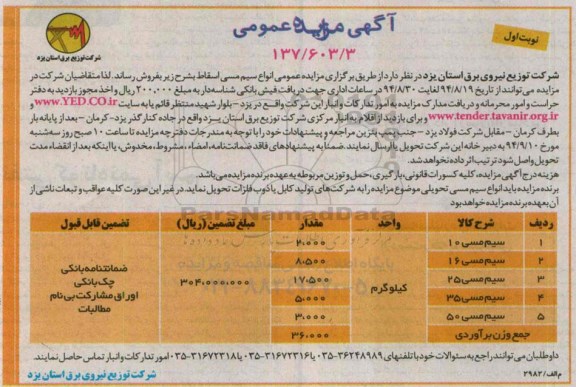 آگهی مزایده عمومی
نوبت اول
۱۳۷/۶۰۳/۳
شرکت توزیع برق استان یزد
شرکت توزیع نیروی برق استان یزد در نظر دارد از طریق برگزاری مزایده عمومی انواع سیم مسی اسقاط بشرح زیر بفروش رساند. لذا متقاضیان شرکت در
مزایده می توانند از تاریخ ۹۴/۸/۱۹ لغایت ۹۴/۸/۳۰ در ساعات اداری جهت دریافت فیش بانکی شناسه دار به مبلغ ۲۰۰،۰۰۰ ریال واخذ مجوز بازدید به دفتر
حراست و امور محرمانه و دریافت مدارک مزایده به امور تدارکات و انبار این شرکت واقع در یزد - بلوار شهید منتظر قائم یا به سایت www.YED.CO.ir و
www.tender.tavanir.org.ir و برای بازدید از اقلام به انبار مرکزی شرکت توزیع برق استان یزد واقع در جاده کنارگذر یزد - کرمان - بعد از پایانه بار
بطرف کرمان - مقابل شرکت فولاد یزد - جنب پمپ بنزین مراجعه و پیشنهادات خود را با توجه به مندرجات دفترچه مزایده تا ساعت ۱۰ صبح روز سه شنبه
مورخ ۹۴/۹/۱۰ به دبیرخانه این شرکت تحویل یا ارسال نمایند. ضمنا به پیشنهادهای فاقد ضمانت نامه، امضاء، مشروط، مخدوش، یا اینکه بعد از انقضاء مدت
تحویل واصل شود ترتیب اثر داده نخواهد شد.
هزینه درج آگهی مزایده، کلیه کسورات قانونی، بارگیری، حمل و توزین مربوطه به عهده برنده مزایده می باشد.
برنده مزایده باید انواع سیم مسی تحویلی موضوع مزایده را به شرکت های تولید کابل یا ذوب فلزات تحویل نماید. در غیر این صورت کلیه عواقب و تبعات ناشی از
آن بعهده برنده مزایده خواهد بود
ردیف شرح کالا واحد مقدار مبلغ تضمین (ریال) تضمین قابل قبول
۱ سیم مسی ۱۰ کیلوگرم ۲،۰۰۰ ۳۰۴،۰۰۰،۰۰۰ ضمانتنامه بانکی
۲ سیم مسی ۱۶ ۸،۵۰۰ چک بانکی
۳ سیم مسی ۲۵ ۱۷،۵۰۰ اوراق مشارکت بی نام
۴ سیم مسی ۳۵ ۵،۰۰۰ مطالبات
۵ سیم مسی ۵۰ ۳،۰۰۰
جمع وزن برآوردی ۳۶،۰۰۰
داوطلبان می توانند راجع به سئوالات خود با تلفنهای ۳۶۲۴۸۹۸۹-۰۳۵ یا ۳۱۶۷۲۳۱۶-۰۳۵ یا ۳۱۶۷۲۳۱۸-۰۳۵ امور تدارکات و انبار تماس حاصل نمایند.
شرکت توزیع نیروی برق استان یزد
م الف / ۲۹۸۲